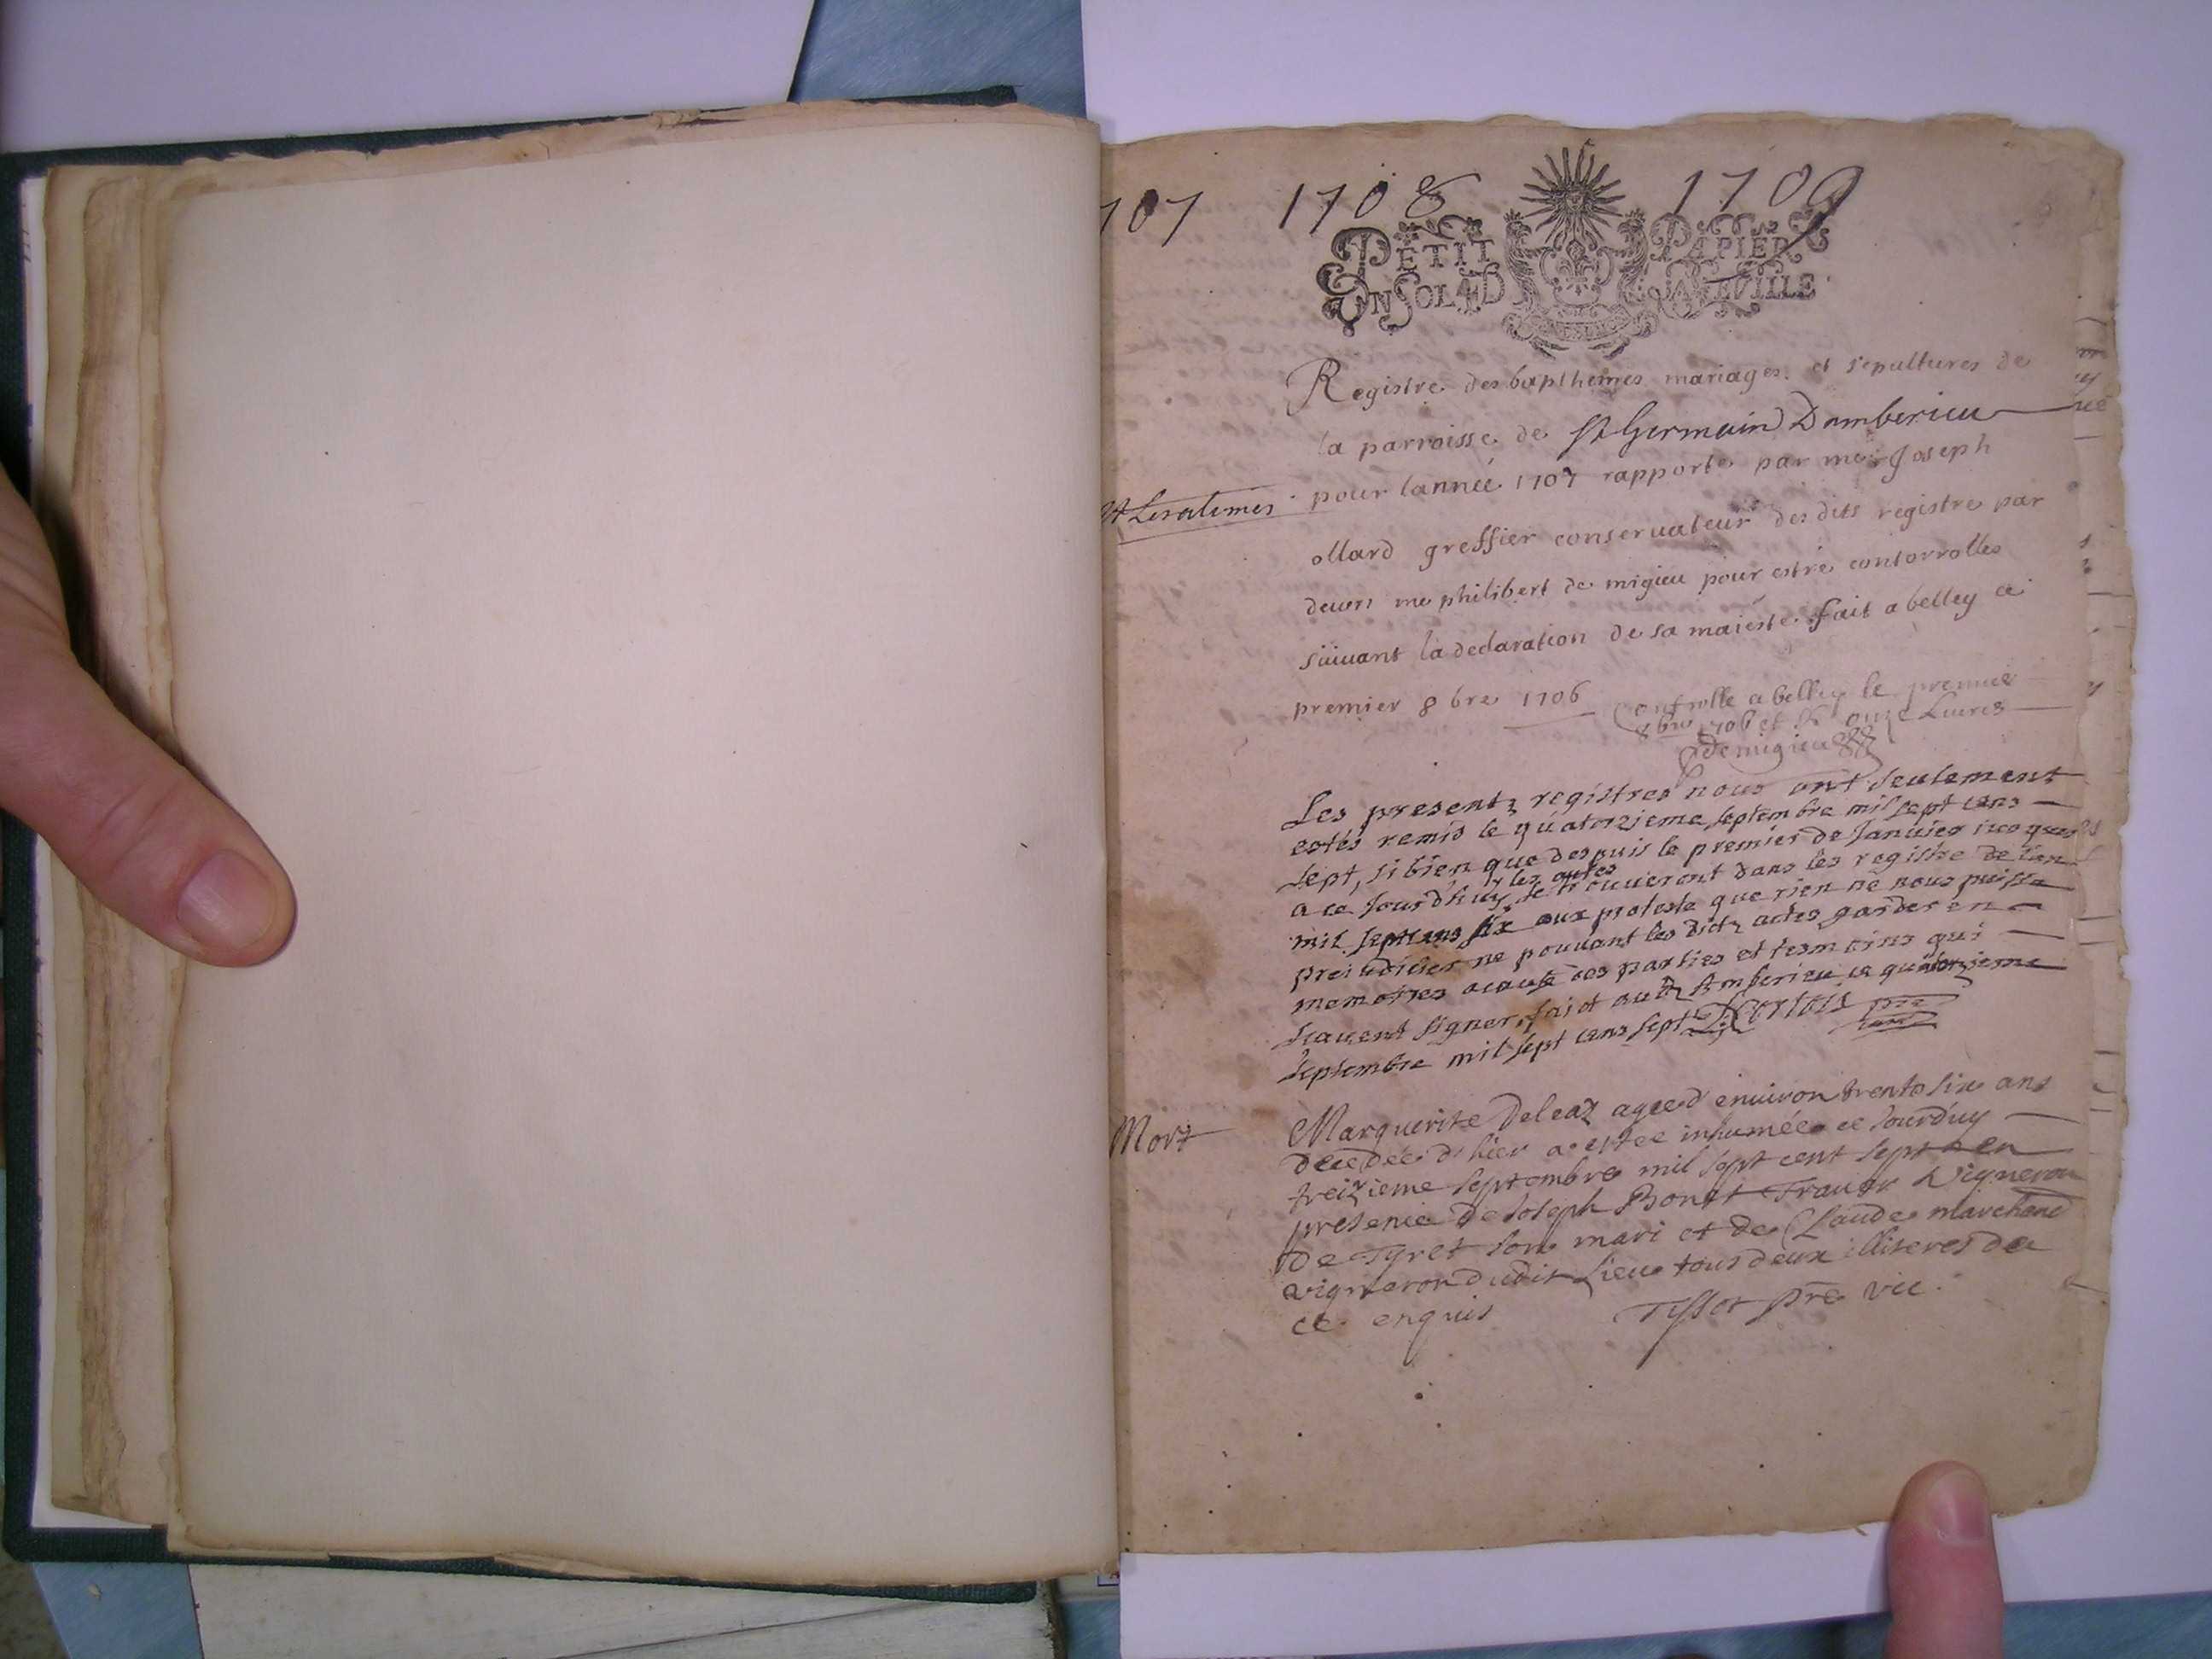 707 1708 1709
PETIT PAPIER
UN SOL 4 D LA FEUILLE
Registre des bapthemes mariages et sepultures de
la parroisse de St Germain Damberieu
pour lannée 1707 rapporte par me Joseph
ollard greffier conservateur des dits registre par
devers me philibert de migieu pour estre contorrolles
suivant la declaration de sa maieste fait a belley ce
premier 8bre 1706
Controlle a belley le premier
8bre 1706 et onze Livres
demigieu
Les presentz registres nous ont seulement
estés remis le quatorzieme septembre mil sept cens
sept, si bien que despuis le premier de Janvier jusques
a ce jourd'huy les actes se trouveront dans les registre de lan
mil sept cens six aux proteste que rien ne nous puisse
preiudicier ne pouvant les dictz actes garder en
memoires a cause des parties et tesmoins qui
scavent signer, faict audt Amberieu ce quatorzieme
septembre mil sept cens sept
Mort
Marguerite Deleaz agée d'environ trente six ans
decedée d'hier a estee inhumée ce Jourduy
treizieme septembre mil sept cent sept en
presence de Joseph Bonet Travar Vigneron
de Tyret son mari et de Claude marchand
vigneron dudit Lieu tous deux illiteres de
ce enquis Tissot pre vic.